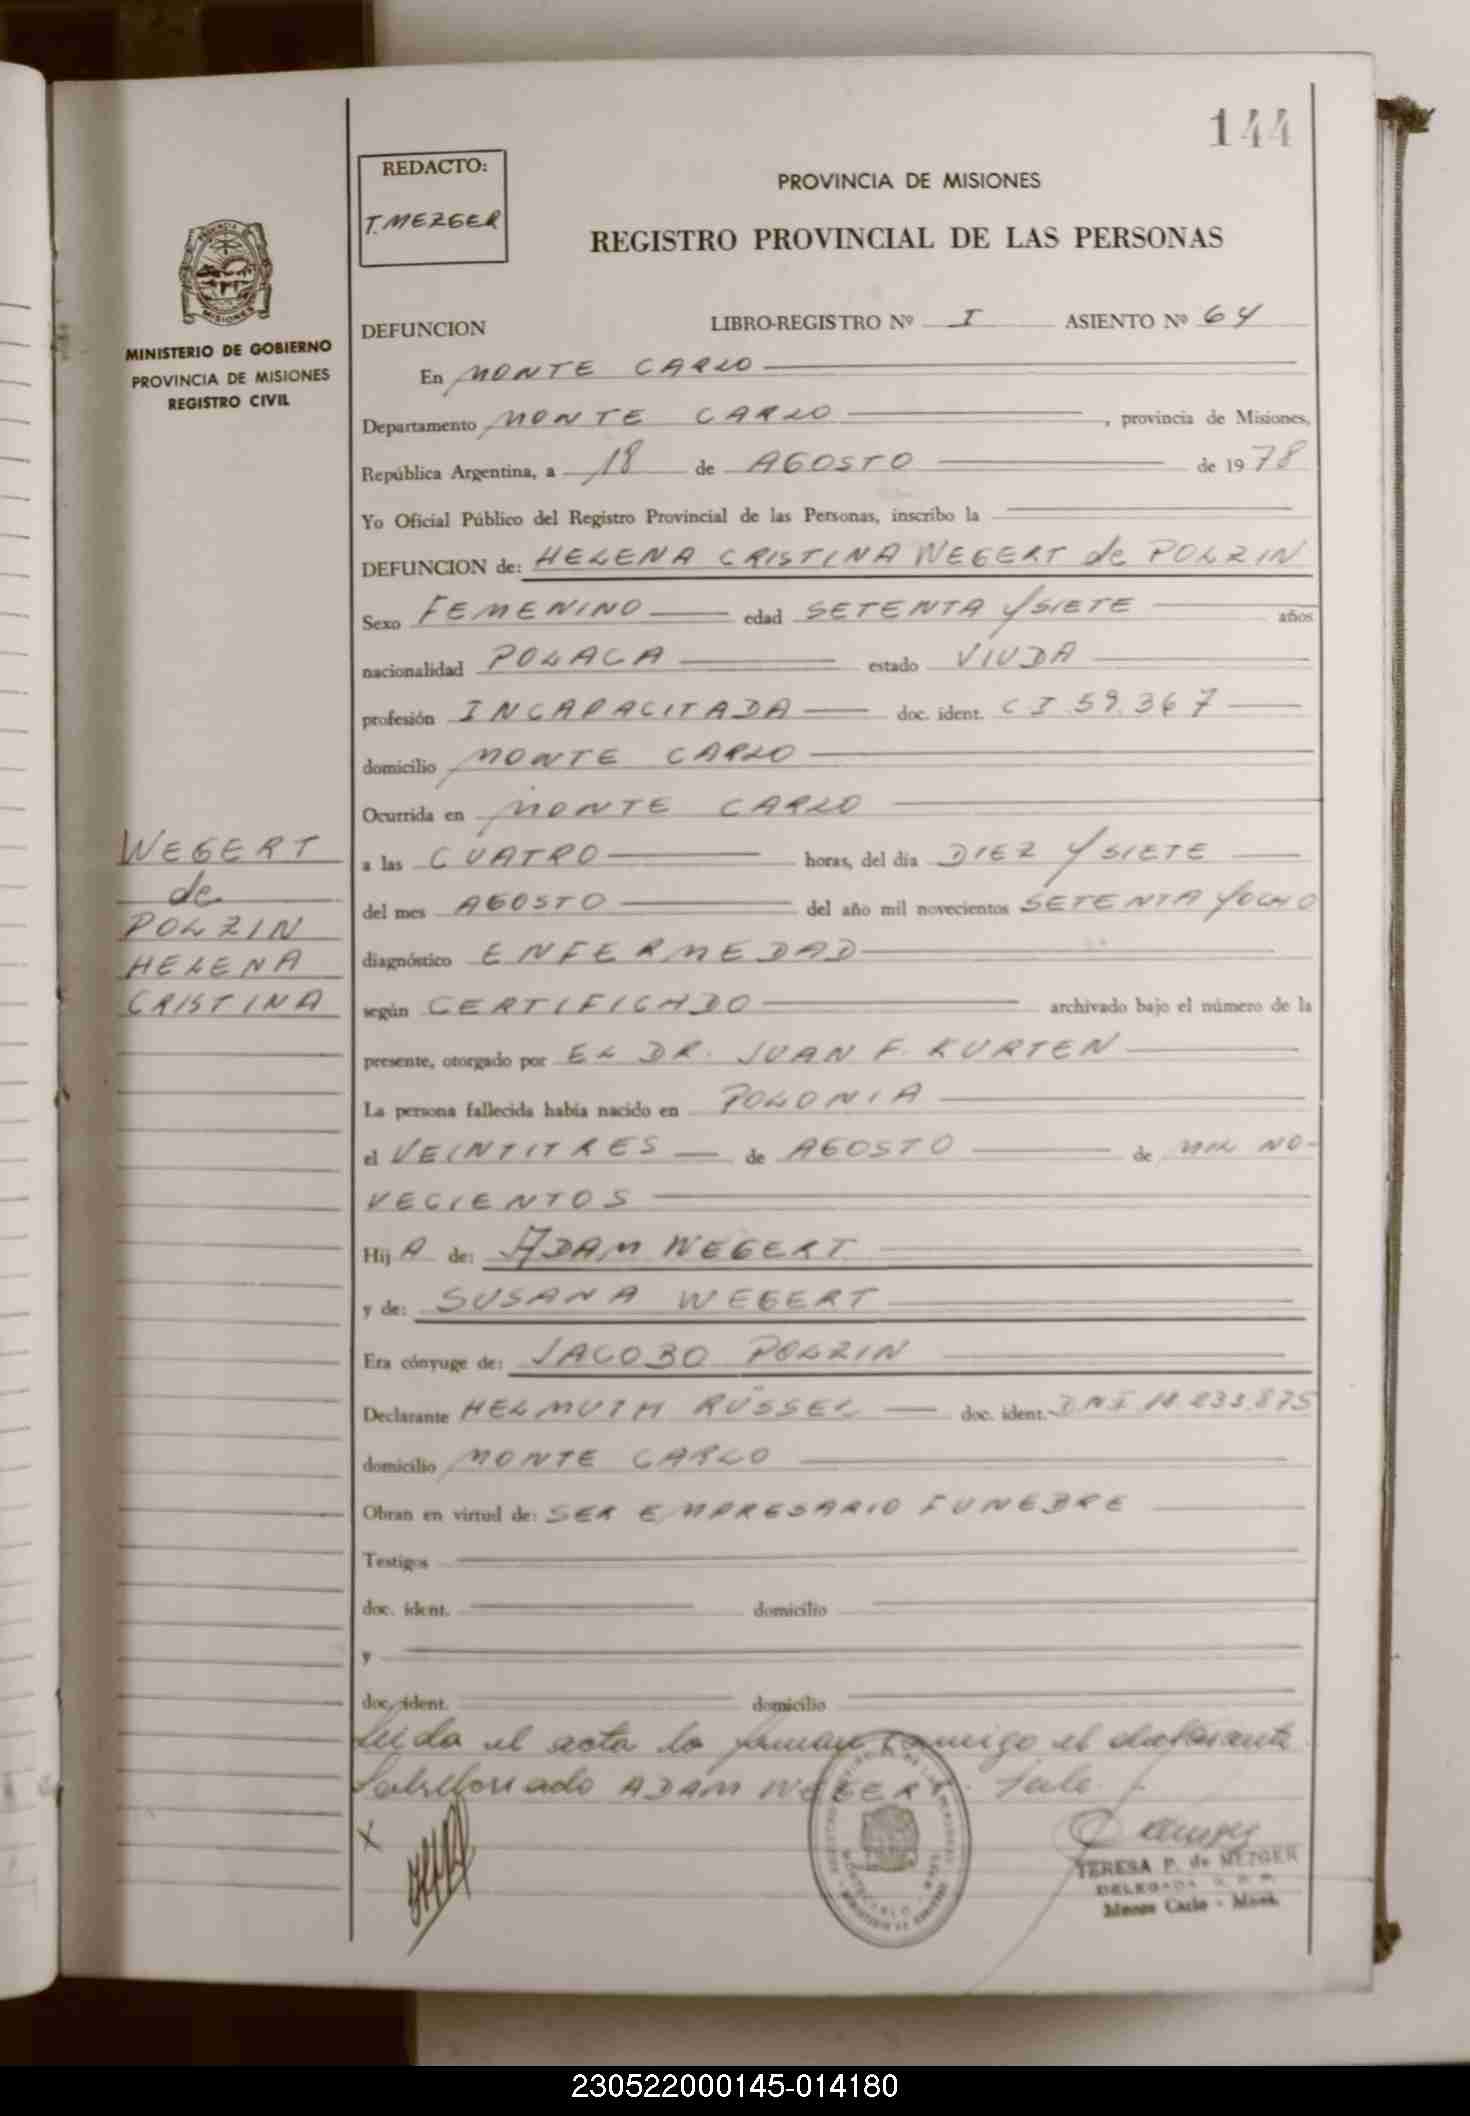 144
REDACTO:
T. MEZGER
PROVINCIA DE MISIONES
REGISTRO PROVINCIAL DE LAS PERSONAS
MINISTERIO DE GOBIERNO
PROVINCIA DE MISIONES
REGISTRO CIVIL
DEFUNCION LIBRO-REGISTRO Nº I ASIENTO Nº 64
En MONTE CARLO
Departamento MONTE CARLO , provincia de Misiones,
República Argentina, a 18 de AGOSTO de 1978
Yo Oficial Público del Registro Provincial de las Personas, inscribo la
DEFUNCION de: HELENA CRISTINA WEGERT de POLZIN
Sexo FEMENINO edad SETENTA y SIETE años
nacionalidad POLACA estado VIUDA
profesión INCAPACITADA doc. ident. C I 59.367
domicilio MONTE CARLO
Ocurrida en MONTE CARLO
WEGERT
de
POLZIN
HELENA
CRISTINA
a las CUATRO horas, del día DIEZ y SIETE
del mes AGOSTO del año mil novecientos SETENTA y OCHO
diagnóstico ENFERMEDAD
según CERTIFICADO archivado bajo el número de la
presente, otorgado por EL DR. JUAN F. KURTEN
La persona fallecida había nacido en POLONIA
el VEINTITRES de AGOSTO de MIL NO-
VECIENTOS
Hij A de: ADAM WEGERT
y de: SUSANA WEGERT
Era cónyuge de: JACOBO POLZIN
Declarante HELMUTH RÜSSEL doc. ident. DNI 18.233.875
domicilio MONTE CARLO
Obran en virtud de: SER EMPRESARIO FUNEBRE
Testigos
doc. ident. domicilio
y
doc. ident. domicilio
Leida el acta la firman conmigo el declarante
Sobreborrado ADAM WEGERT. Vale.
X
TERESA P. de MEZGER
DELEGADA R. P. P.
Monte Carlo - Mnes.
230522000145-014180